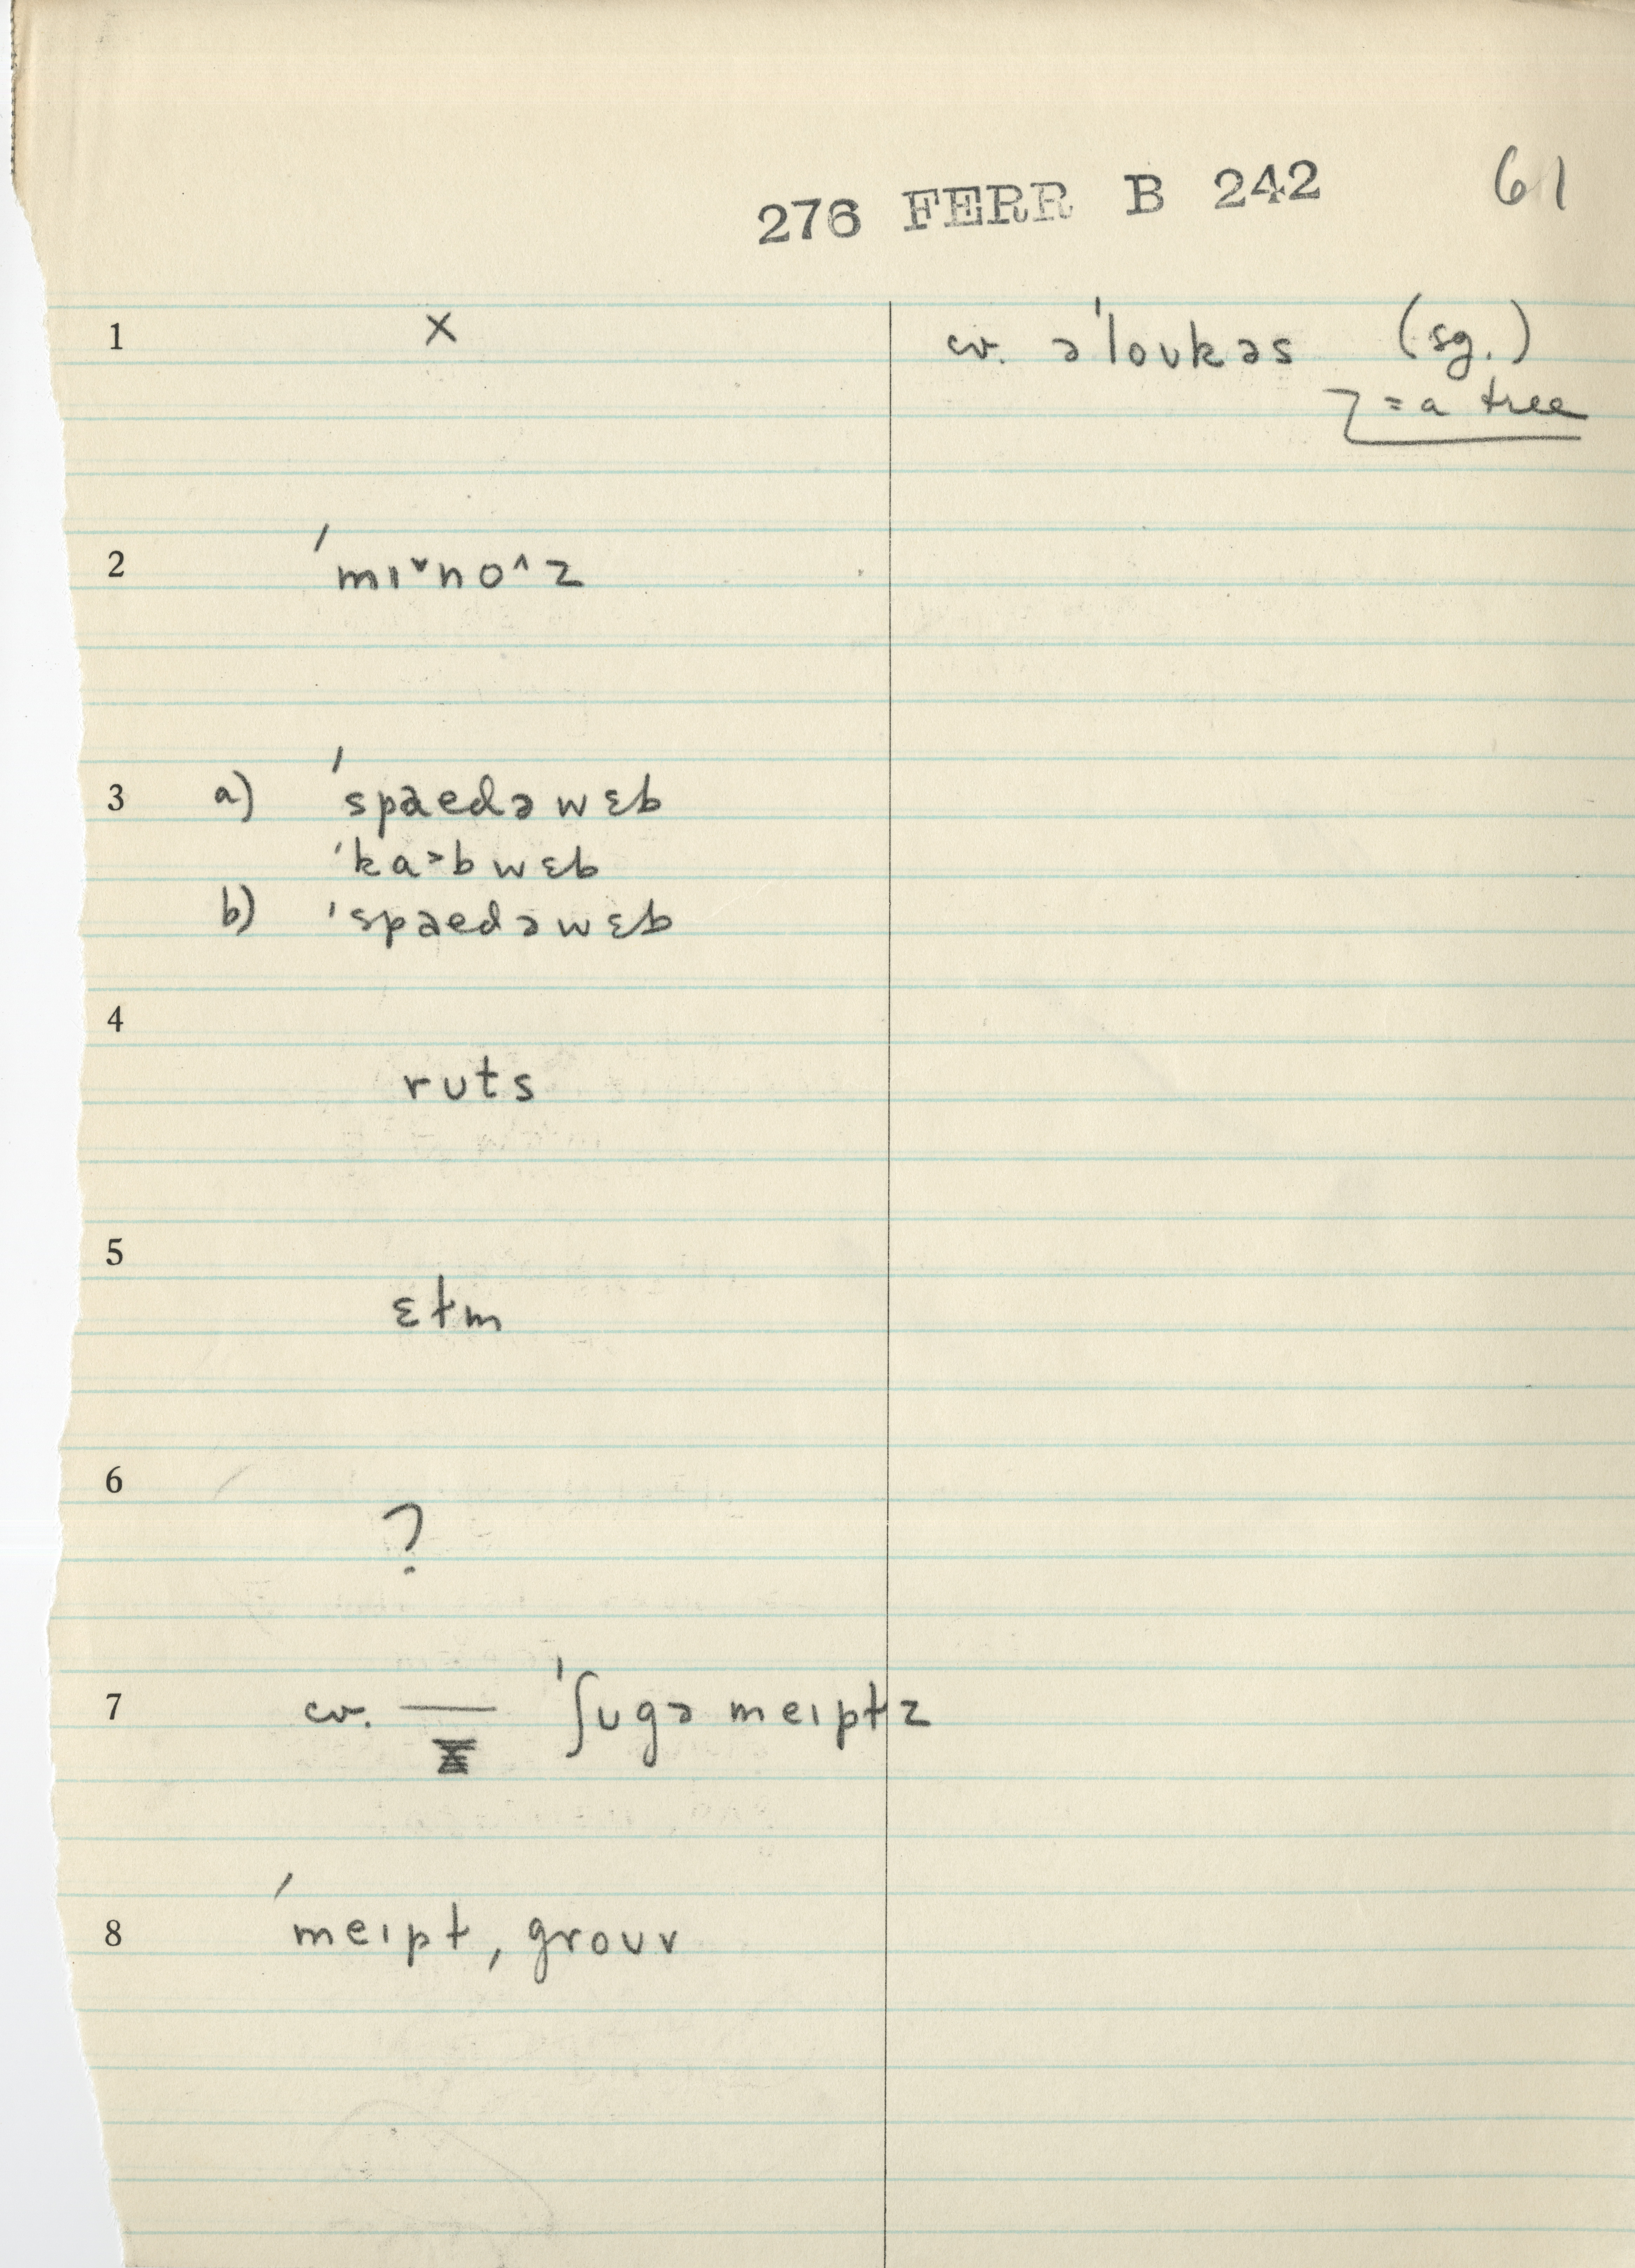 276 FERR B 242 61
1 x cv. ə'loukəs (sg.)
= a tree
2 'mɪ˅no^z
3 a) 'spaedəwɛb
'ka>bwɛb
b) 'spaedəwɛb
4
ruts
5
ɛłm
6
?
7 cv. — 'ʃugə meɪpłz
8 'meɪpł, grouv